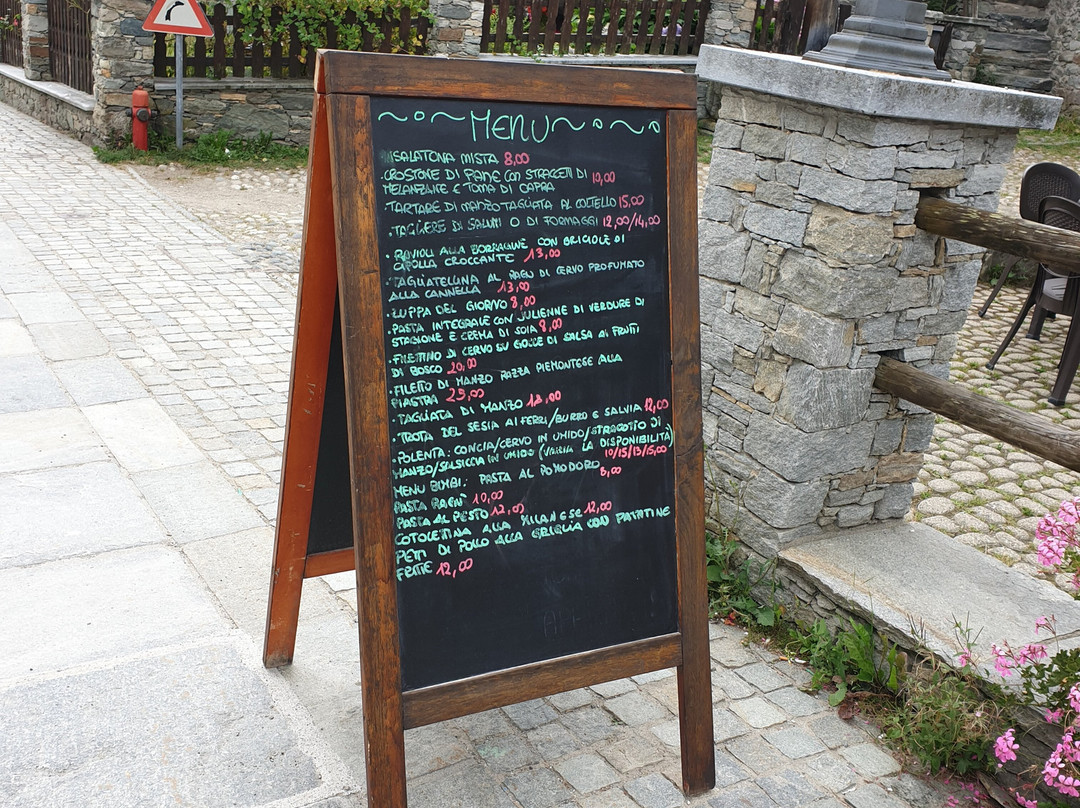 ~o~MENU~o~o
INSALATONA MISTA 8,00
CROSTONE DI PANE CON STRACCETTI DI 10,00
MELANZANE E TOMA DI CAPRA
TARTARE DI MANZO TAGLIATA AL COLTELLO 15,00
•TAGLIERE DI SALUMI O DI FORMAGGI 12,00/14,00
•RAVIOLI ALLA BORRAGINE CON BRICIOLE DI
CIPOLLA CROCCANTE 13,00
•TAGLIATELLINA AL RAGU DI CERVO PROFUMATO
ALLA CANNELLA 13,00
•ZUPPA DEL GIORNO 8,00
•PASTA INTEGRALE CON JULIENNE DI VERDURE DI
STAGIONE E CREMA DI SOIA 8,00
•FILETTINO DI CERVO SU GOCCE DI SALSA AI FRUTTI
DI BOSCO 20,00
•FILETTO DI MANZO RAZZA PIEMONTESE ALLA
PIASTRA 25,00
•TAGLIATA DI MANZO 18,00
•TROTA DEL SESIA AI FERRI/BURRO E SALVIA 12,00
•POLENTA: CONCIA/CERVO IN UMIDO/STRACOTTO DI
MANZO/SALSICCIA IN UMIDO (VARIA LA DISPONIBILITÀ)
10/15/13/15,00
MENU BIMBI: PASTA AL POMODORO 8,00
PASTA RAGÙ 10,00
PASTA AL PESTO 12,00
COTOLETTINA ALLA MILANESE 12,00
PETTI DI POLLO ALLA GRIGLIA CON PATATINE
FRITTE 12,00